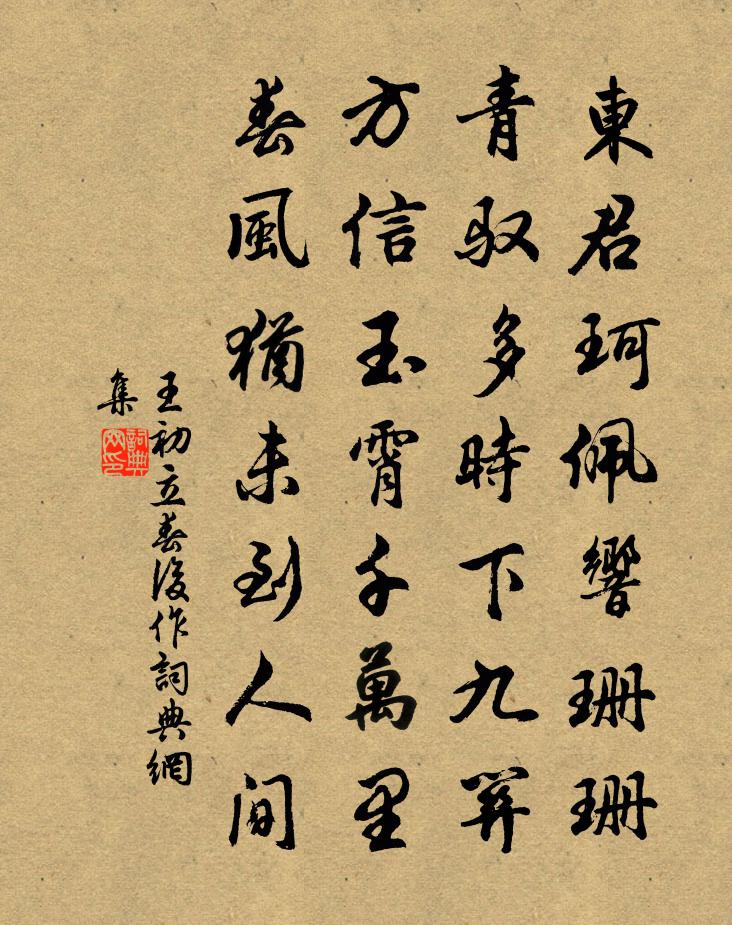 東君珂佩響珊珊
青馭多時下九關
方信玉霄千萬里
春風猶未到人間
王初立春後作詞典網
集
詞典
网印